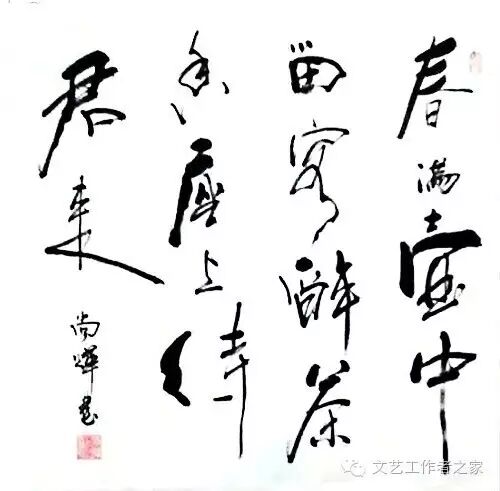 春满壶中
留客醉茶
香座上待
君来
尚晖书
文艺工作者之家